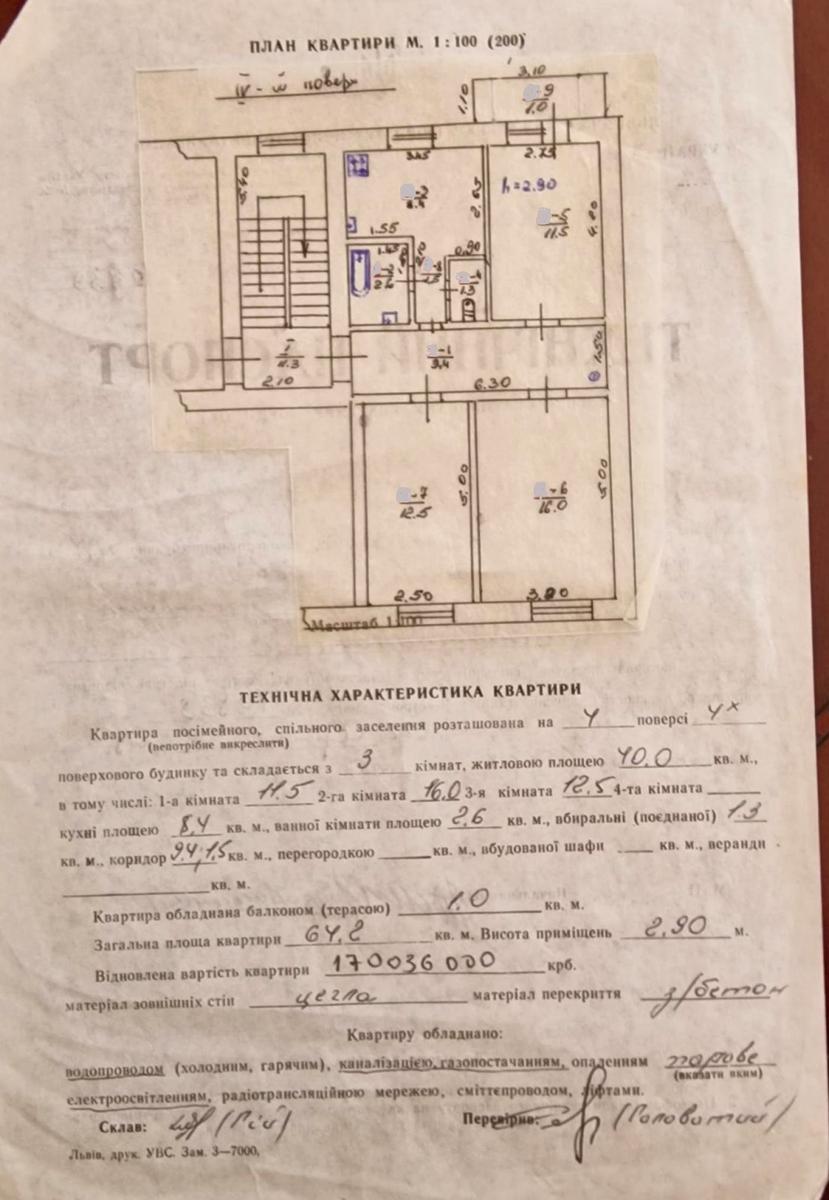 ПЛАН КВАРТИРИ М. 1 : 100 (200)
IV-й поверх
3.10
1.10
-9
1.0
5.40
3.45
2.75
-2
8.4
2.65
h=2.90
-5
11.5
4.20
1.55
1.65
0.90
-3
2.6
1.5
-4
1.3
I
4.3
2.10
-1
9.4
1.50
6.30
-7
12.5
5.00
-6
16.0
5.00
2.50
3.20
Масштаб 1:100
ТЕХНІЧНА ХАРАКТЕРИСТИКА КВАРТИРИ
Квартира посімейного, спільного заселення розташована на 4 поверсі 4х
(непотрібне викреслити)
поверхового будинку та складається з 3 кімнат, житловою площею 40,0 кв. м.,
в тому числі: 1-а кімната 11.5 2-га кімната 16.0 3-я кімната 12,5 4-та кімната
кухні площею 8,4 кв. м., ванної кімнати площею 2,6 кв. м., вбиральні (поєднаної) 1.3
кв. м., коридор 9.4; 1,5 кв. м., перегородкою кв. м., вбудованої шафи кв. м., веранди
кв. м.
Квартира обладнана балконом (терасою) 1.0 кв. м.
Загальна площа квартири 64,2 кв. м. Висота приміщень 2,90 м.
Відновлена вартість квартири 170036000 крб.
матеріал зовнішніх стін цегла матеріал перекриття з/бетон
Квартиру обладнано:
водопроводом (холодним, гарячим), каналізацією, газопостачанням, опаленням парове
(вказати яким)
електроосвітленням, радіотрансляційною мережею, сміттєпроводом, ліфтами.
Склав: (Гій) Перевірив: (Головатий)
Львів, друк. УВС. Зам. 3—7000.